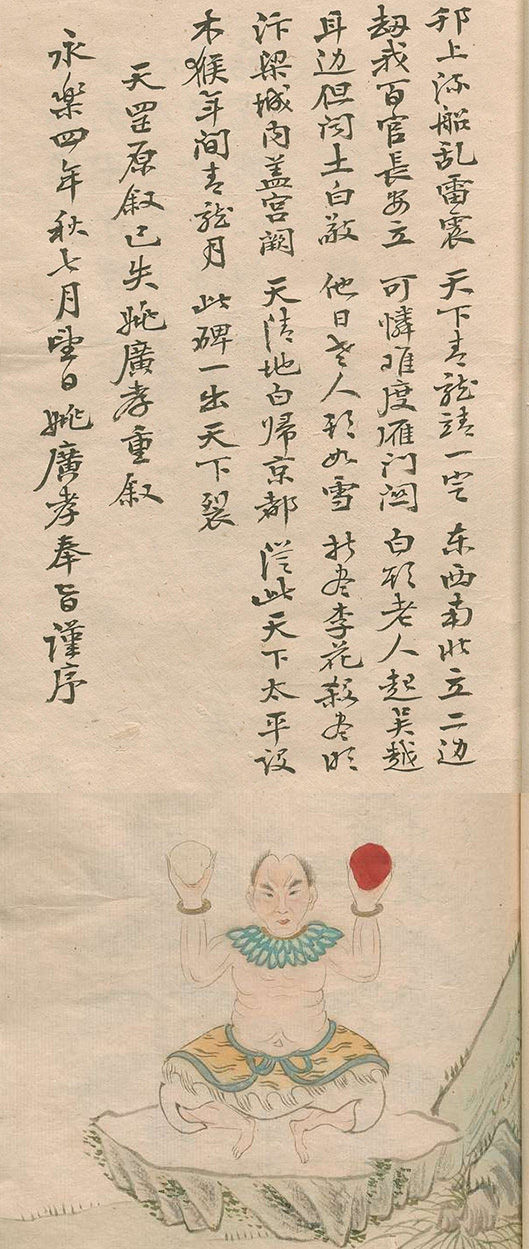 邗上流船乱雷震 天下青龙靖一空 东西南北立二边
劫我百官長安立 可憐难度雁门関 白头老人起吴越
耳边但闻土白敲 他日老人头如雪 折尽李花殺尽
汴梁城内盖宫阙 天清地白帰京都 从此天下太平设
木猴年间青龙月 此碑一出天下裂
天罡原叙已失姚廣孝重叙
永樂四年秋七月望日姚廣孝奉旨谨序